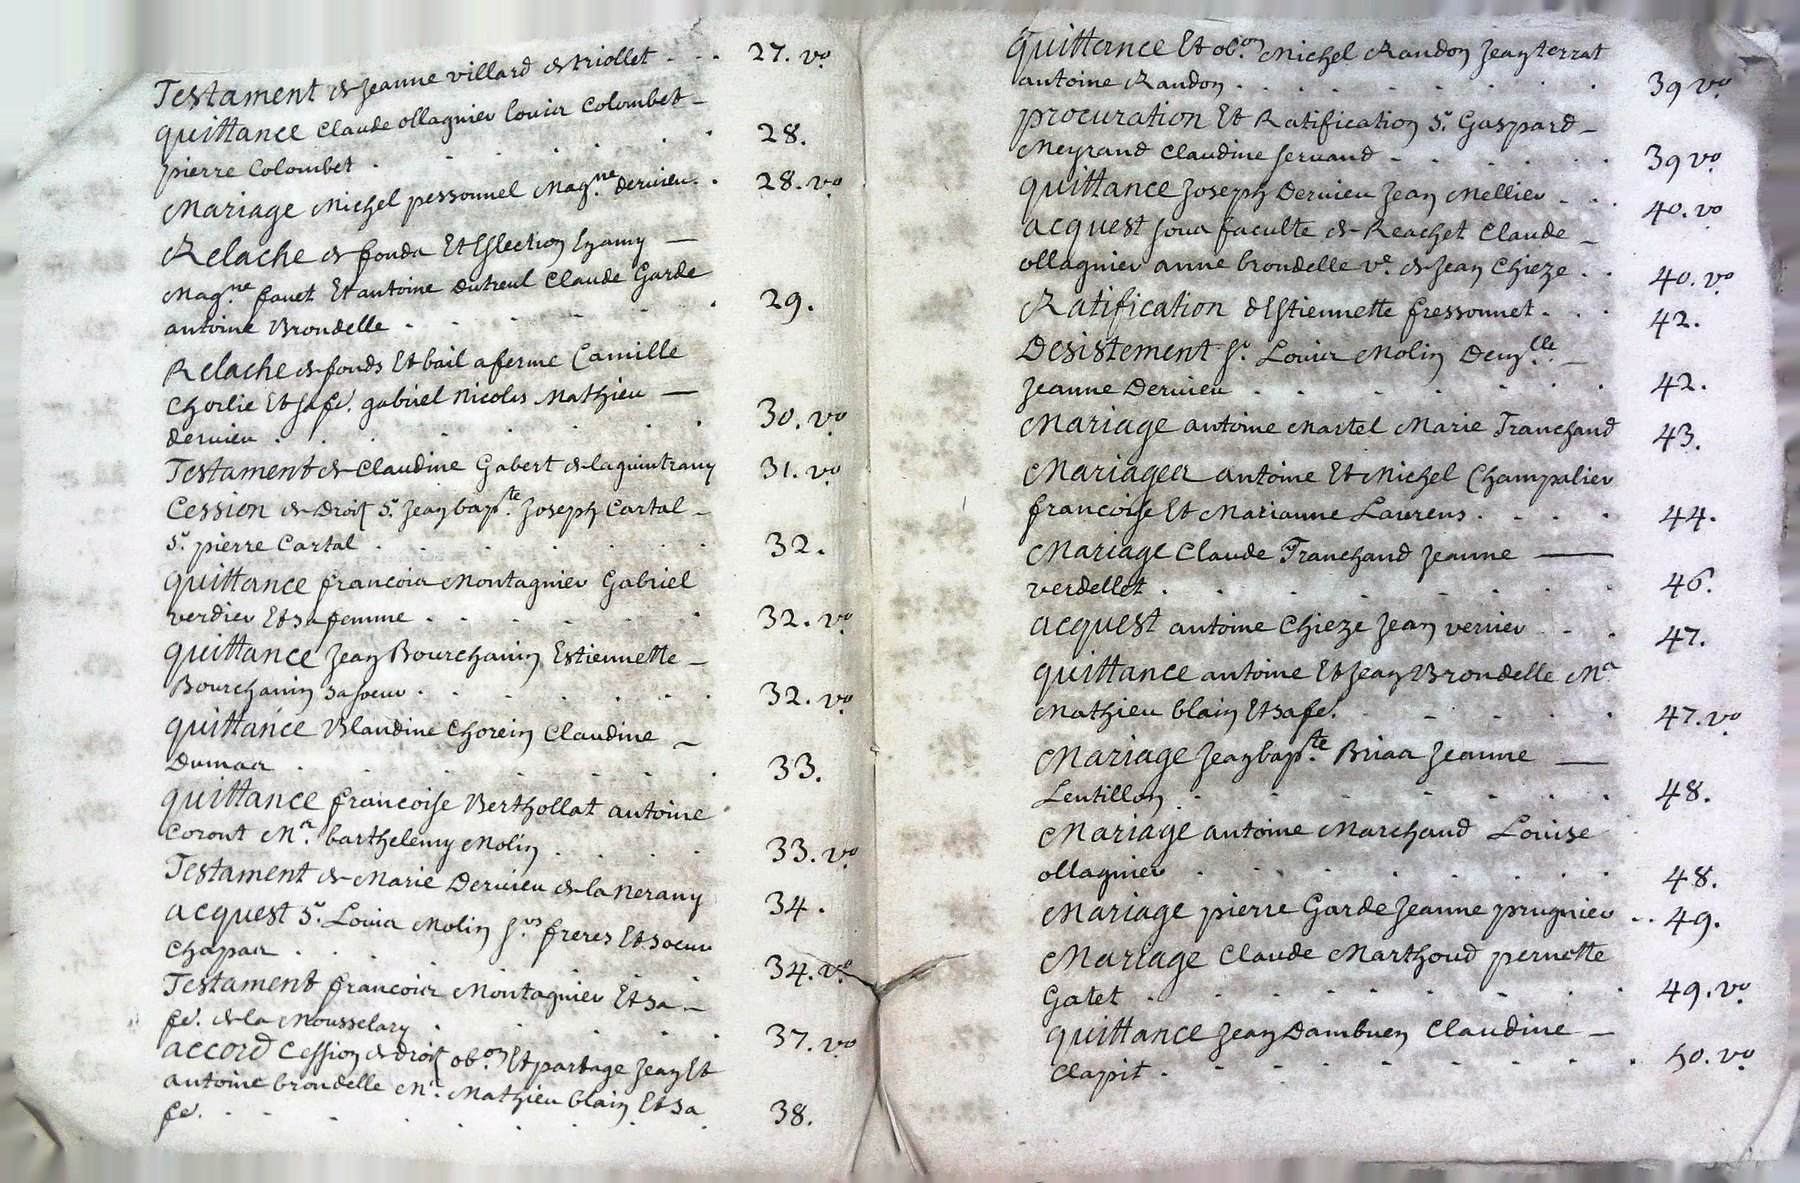 Testament de Jeanne villard de triollet . . . 27. vo
quittance Claude ollagnier louis Colombet -
pierre Colombet . . . . . . 28.
Mariage Michel pessonnel Magne dervieu . . 28. vo
Relache de fonds Et Eslection
Magne fauet Et antoine dutreul Claude Garde
antoine Brondelle . . . . . 29.
Relache de fonds Et bail aferme Camille
Chorlie Et safe. gabriel Nicolas Mathieu —
dervieu . . . . . . 30. vo
Testament de Claudine Gabert de laguintrany 31. vo
Cession de Droit Sr. Jean bapte. Joseph Cartal -
Sr. pierre Cartal . . . . . . 32.
quittance francois Montagnier Gabriel
verdier Et sa femme . . . . . 32. vo
quittance Jean Bourchanin Estiennette -
Bourchanin sa soeur . . . . . 32. vo
quittance Blandine Chorein Claudine -
Dumas . . . . . . 33.
quittance francoise Berthollat antoine
Coront Mr. barthelemy Molin . . . . 33. vo
Testament de Marie Dervieu de la Nerany 34.
acquest Sr. Louis Molin Srs freres Et soeur
Chapas . . . . . . 34. vo
Testament francois Montagnier Et sa -
fe. de la Mousselary . . . . . 37. vo
accord Cession de droit obon Et partage Jean Et
antoine brondelle Mr. Mathieu blain Et sa
fe. . . . . . . 38.
quittance Et obon. Michel Randon Jean terrat
antoine Randon . . . . . . 39 vo
procuration Et Ratification Sr. Gaspard -
Meyrand Claudine servand - . . . . 39 vo
quittance Joseph Dervieu Jean Mellier . . . 40. vo
acquest sous faculte de Reachet Claude -
ollagnier anne brondelle ve. de Jean Chieze . . 40. vo
Ratification d'Estiennette fressonnet . . . 42.
Desistement Sr. Louis Molin Demlle -
Jeanne Dervieu . . . . . . 42.
Mariage antoine Martel Marie Tranchand 43.
Mariages antoine Et Michel Champalier
francoise Et Marianne Laurens . . . . 44.
Mariage Claude Tranchand Jeanne —
verdellet . . . . . . 46.
acquest antoine Chieze Jean verrier . . . 47.
quittance antoine Et Jean Brondelle Mr
Mathieu blain Et safe. . . . . 47. vo
Mariage Jean bapte. Brias Jeanne —
Lentillon . . . . . . 48.
Mariage antoine Marchand Louise
ollagnier . . . . . . 48.
Mariage pierre Garde Jeanne prugnier . . 49.
Mariage Claude Marthoud pernette
Gatet . . . . . . 49. vo
quittance Jean Dambuen Claudine -
Clapit . . . . . . 50. vo